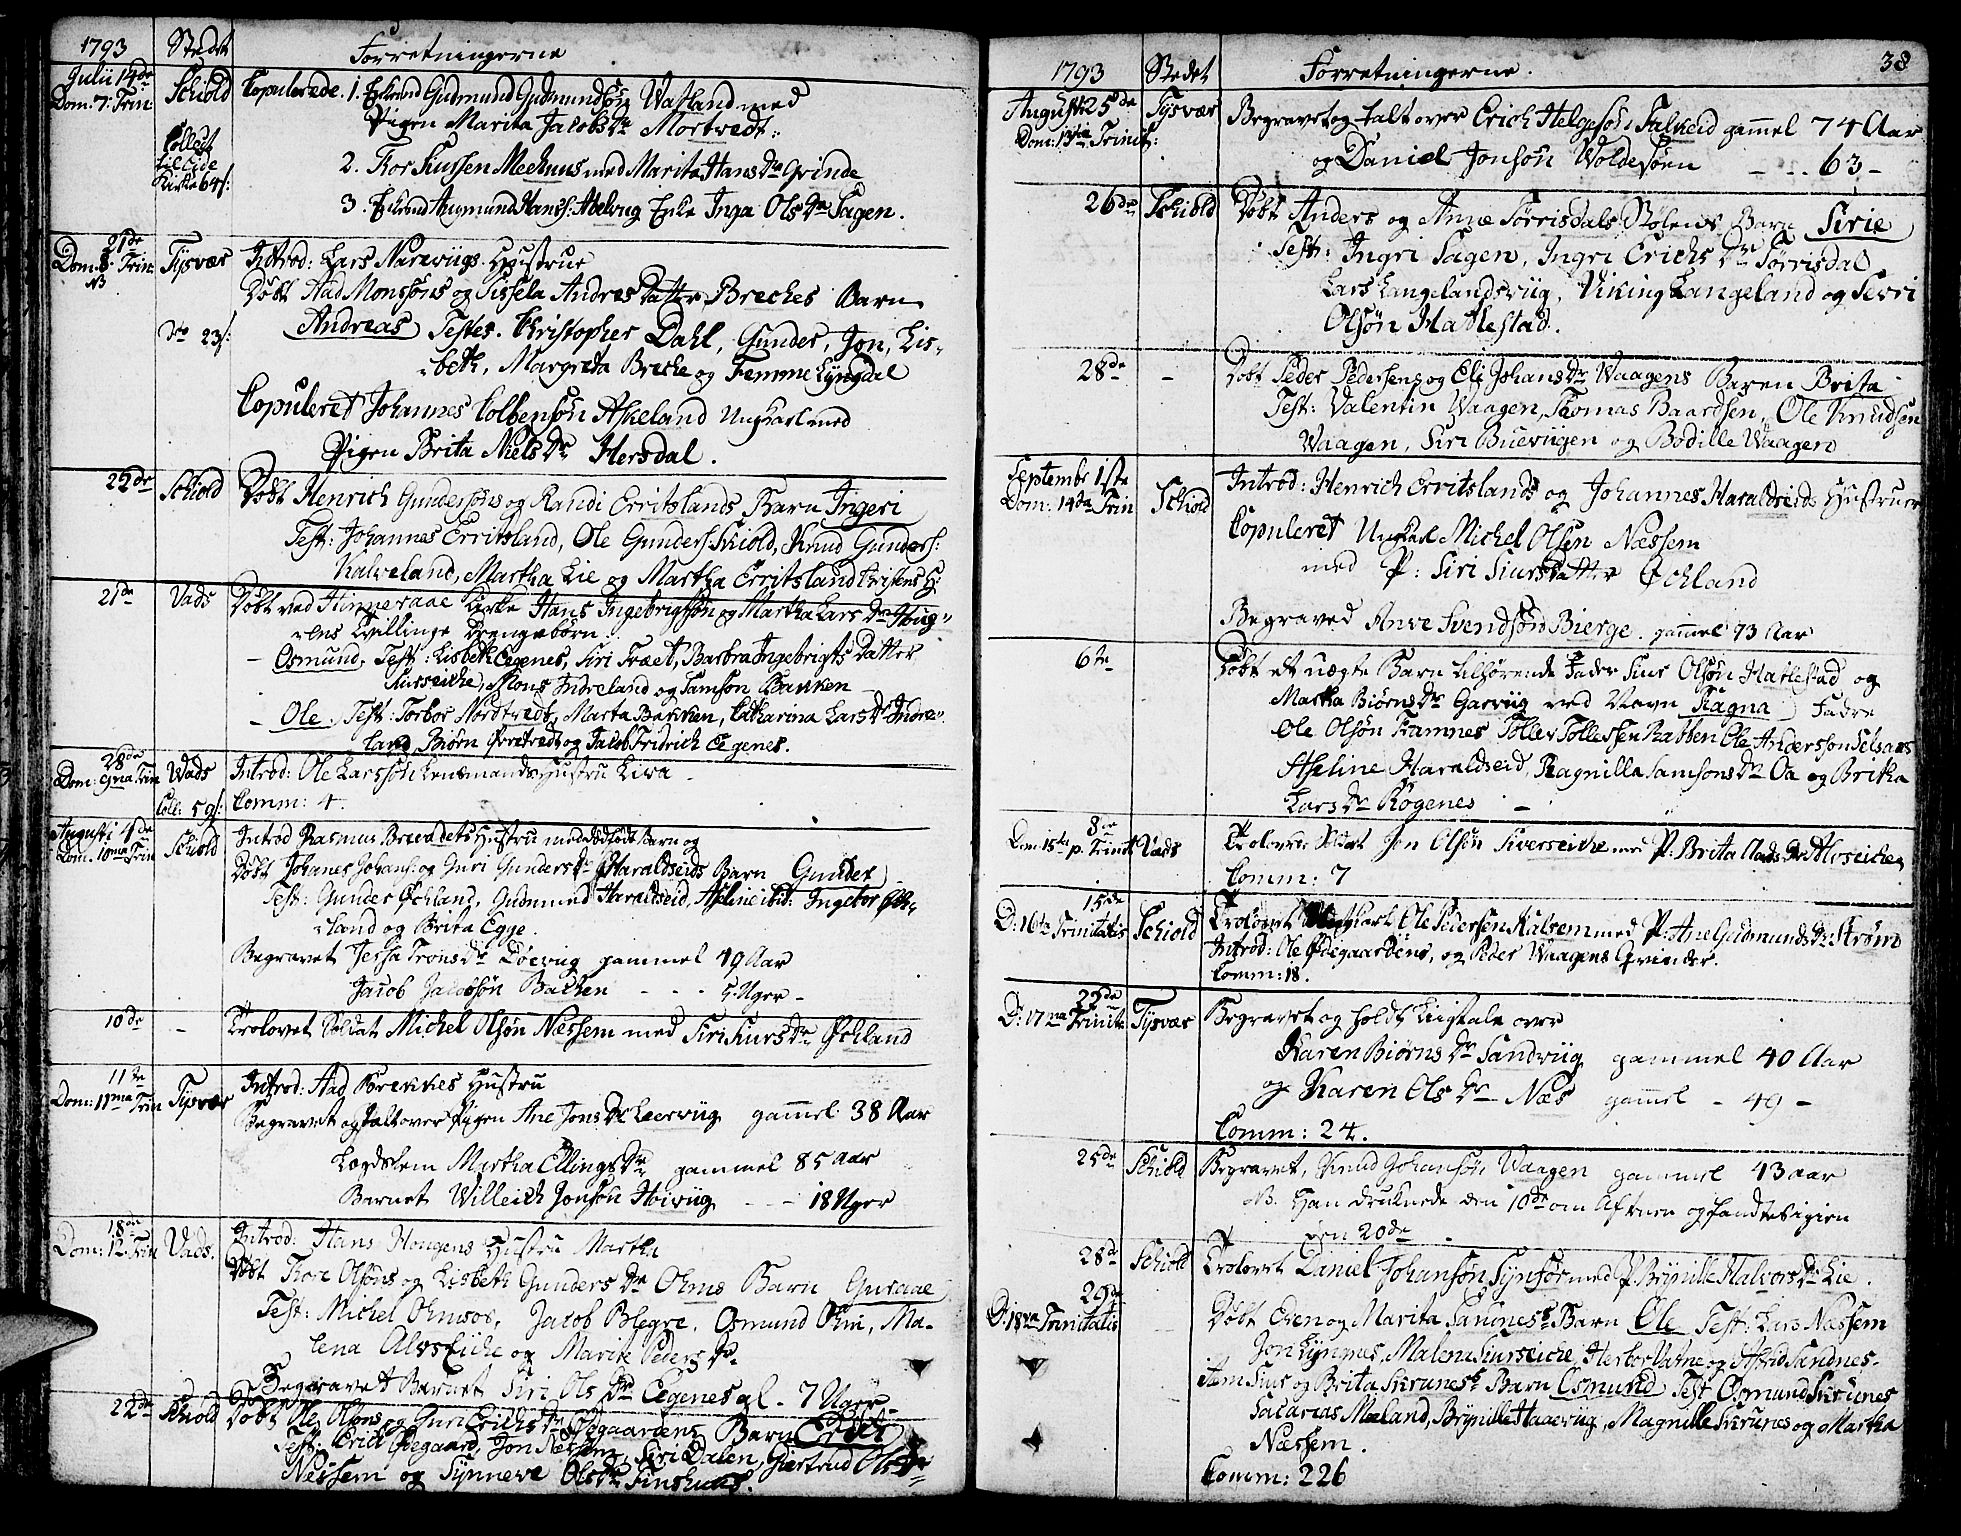 1793 Stedet Forretningerne
Julii 14de Schiold Copulerede. 1. Enkemand Gudmund Gudmundsøn Vatland med
Dom: 7. Trin:
Pigen Marita Jacobs Dr Mortvedt:
Collect
til Eide
Kirke 64 s:
2. Tor Tussen Meehuus med Marita Hans Dr Grinde
3. Enkemand Augmund Hans: Aeleug Enke Inga Ols Dr Sagen.
21de
Dom: 8. Trin: Tysvær Introd: Lars Narevigs Hustrue
Døbt Aad Monsøns og Sissela Andres Datter Breches Barn
23 s: Andreas Testes. Christopher Dahl, Gunder, Jon, Lis-
beth, Margreta Breche og Femme Lyngdal
Copuleret Johannes Colbensøn Askeland Ungkarl med
Pigen Brita Niels Dr Hersdal.
22de Schiold Døbt Henrich Gundersøns og Randi Erritslands Barn Ingeri
Test: Johannes Erritsland, Ole Gunders: Skiold, Knud Gunders:
Kalveland, Martha Lie og Martha Erritsland
21de Vads Døbt ved Hinneraae Kirke Hans Ingebrigtsøn og Martha Lars Dr Houg-
ens Tvillinge Drengebørn.
- Osmund, Test: Lisbeth Egenes, Siri Træet, Barbra Ingebrigts Datter
Siurseiche, Mons Indreland og Samson Bakken
- Ole. Test: Torbor Nordtredt, Marta Bakken, Catharina Lars Dr Indre-
land, Biørn Øvretredt og Jacob Fridrich Egenes.
28de
Dom: 9na Trin Vads Introd: Ole Larssøn Lensmands Hustru Liva
Coll: 59 s: Comm: 4.
Augusti 4de
Dom. 10ma Trin Schiold Introd Rasmus Brevedets Hustru med dødfødt Barn og
Døbt Johanes Johans: og Guri Gunders Dr Haraldseids Barn Gunder
Test: Gunder Øchland, Gudmmed Haraldseid, Aseline ibid: Ingebor Øch-
land og Brita Egge.
Begravet Jessa Trons Dr Døevig gammel 49 Aar
Jacob Jacobsøn Bachen - - - 5. Uger -
10de - Trolovet Soldat Michel Olsøn Næssem med Siri Siurs Dr Øchland
11te
Dom: 11ma Trin Tysvær Introd: Aad Brekkes Hustru
Begravet og talt over Pigen Ane Jons Dr Leervig gammel 38 Aar
Lægdslem Martha Ellings Dr gammel 85 Aar
Barnet Willeich Jonsøn Høivig - - - 18 Uger
18de
Dom: 12. Trin Vads. Introd: Hans Hougens Hustru Martha
Døbt Tore Olsøns og Lisbeth Gunders Dr Olms Barn Guraae
Test: Michel Olmsos, Jacob Blegre, Osmund Olm, Ma-
lena Alvseiche og Marite Peders Dr
Begravet Barnet Siri Ols Dr Egenes gl. 7 Uger -
22de Schiold Døbt Ole Olsøns og Guri Erichs Dr Ødegaardens Barn Erich
Test: Erich Ødegaard, Jon Næssem, Siri Dalen, Giertrud Ols Dr
Næssem og Synneve Ols Dr Finshuus.
1793 Stedet Forretningerne. 38
August 25de Tysvær Begravet og talt over Erich Helgesøn Falkeid gammel 74 Aar
Dom: 13tia Trinit:
og Daniel Jonsøn Woldesøen - - . . 63 -
26de Schiold Døbt Anders og Anne Sørrisdals Stølens Barn Sirie
Test: Ingri Sagen, Ingri Erichs Dr Sørrisdal
Lars Langelandsvig, Viking Langeland og Sivri
Olsøn Hatlestad.
28de - Døbt Peder Pedersens og Eli Johans Dr Waagens Baren Brita
Test: Valentin Waagen, Thomas Baardsen, Ole Knudsen
Waagen, Siri Buevigen og Bodille Waagen
Septembr 1ste
Dom: 14ta Trin Schiold Introd: Henrich Erritslands og Johannes Haraldseids Hustruer
Copuleret Ungkarl Michel Olsen Næssem
med P: Siri Siurs Datter Øchland
Begraved Anve Svendsøn Bierge. gammel 73 Aar
6te Døbt et uægte Barn tilhørende Fader Siur Olsøn Hatlestad og
Martha Biørns Dr Garvig med Navn Ragna Fadre
Ole Olsøn Framnes Tollev Tollefsen Rabben Ole Andersson Selsaas
Aseline Haraldseid, Ragnilla Samsons Dr Oa og Britha
Lars Dr Røgenes -
8de
Dom: 15ta p. Trinit Vads Trolovet Soldat Jon Olsøn Siverseiche med P. Brita Aads Dr Alvseichen
Comm: 7
15de
D: 16ta Trinitatis Schiold Trolovet Ungkarl Ole Pedersen Kalsem med P: Ane Gudmunds Dr Strøm
Introd: Ole Ødegaardens, og Peder Waagens Qvinder.
Comm: 18.
22de
D: 17ma Trinit: Tysvær Begravet og holdt Liigtale over
Karen Biørns Dr Sandvig gammel 40 Aar
og Karen Ols Dr Næs gammel - 49 -
Comm: 24.
25de Schiold Begravet, Knud Johansøn Waagen gammel 43 aar
NB. Han druknede den 10de om Aftnen og fandtes igien
den 20de.
28de Schiold Trolovet Daniel Johansøn Synfør med P. Brynille Halvors Dr Lie.
29de
D: 18va Trinitatis Døbt Eben og Marita Sannes Barn Ole Test: Lars Næssem
Jon Lynnes, Malene Siurseiche, Herbor Vatne og Astrid Sandnes.
Item Siur og Brita Skrunes Barn Osmund Test Osmund Skrunes
Sacarias Mæland, Brynille Haaevig, Magnille Skrunes og Martha
Næssem.
Comm: 226